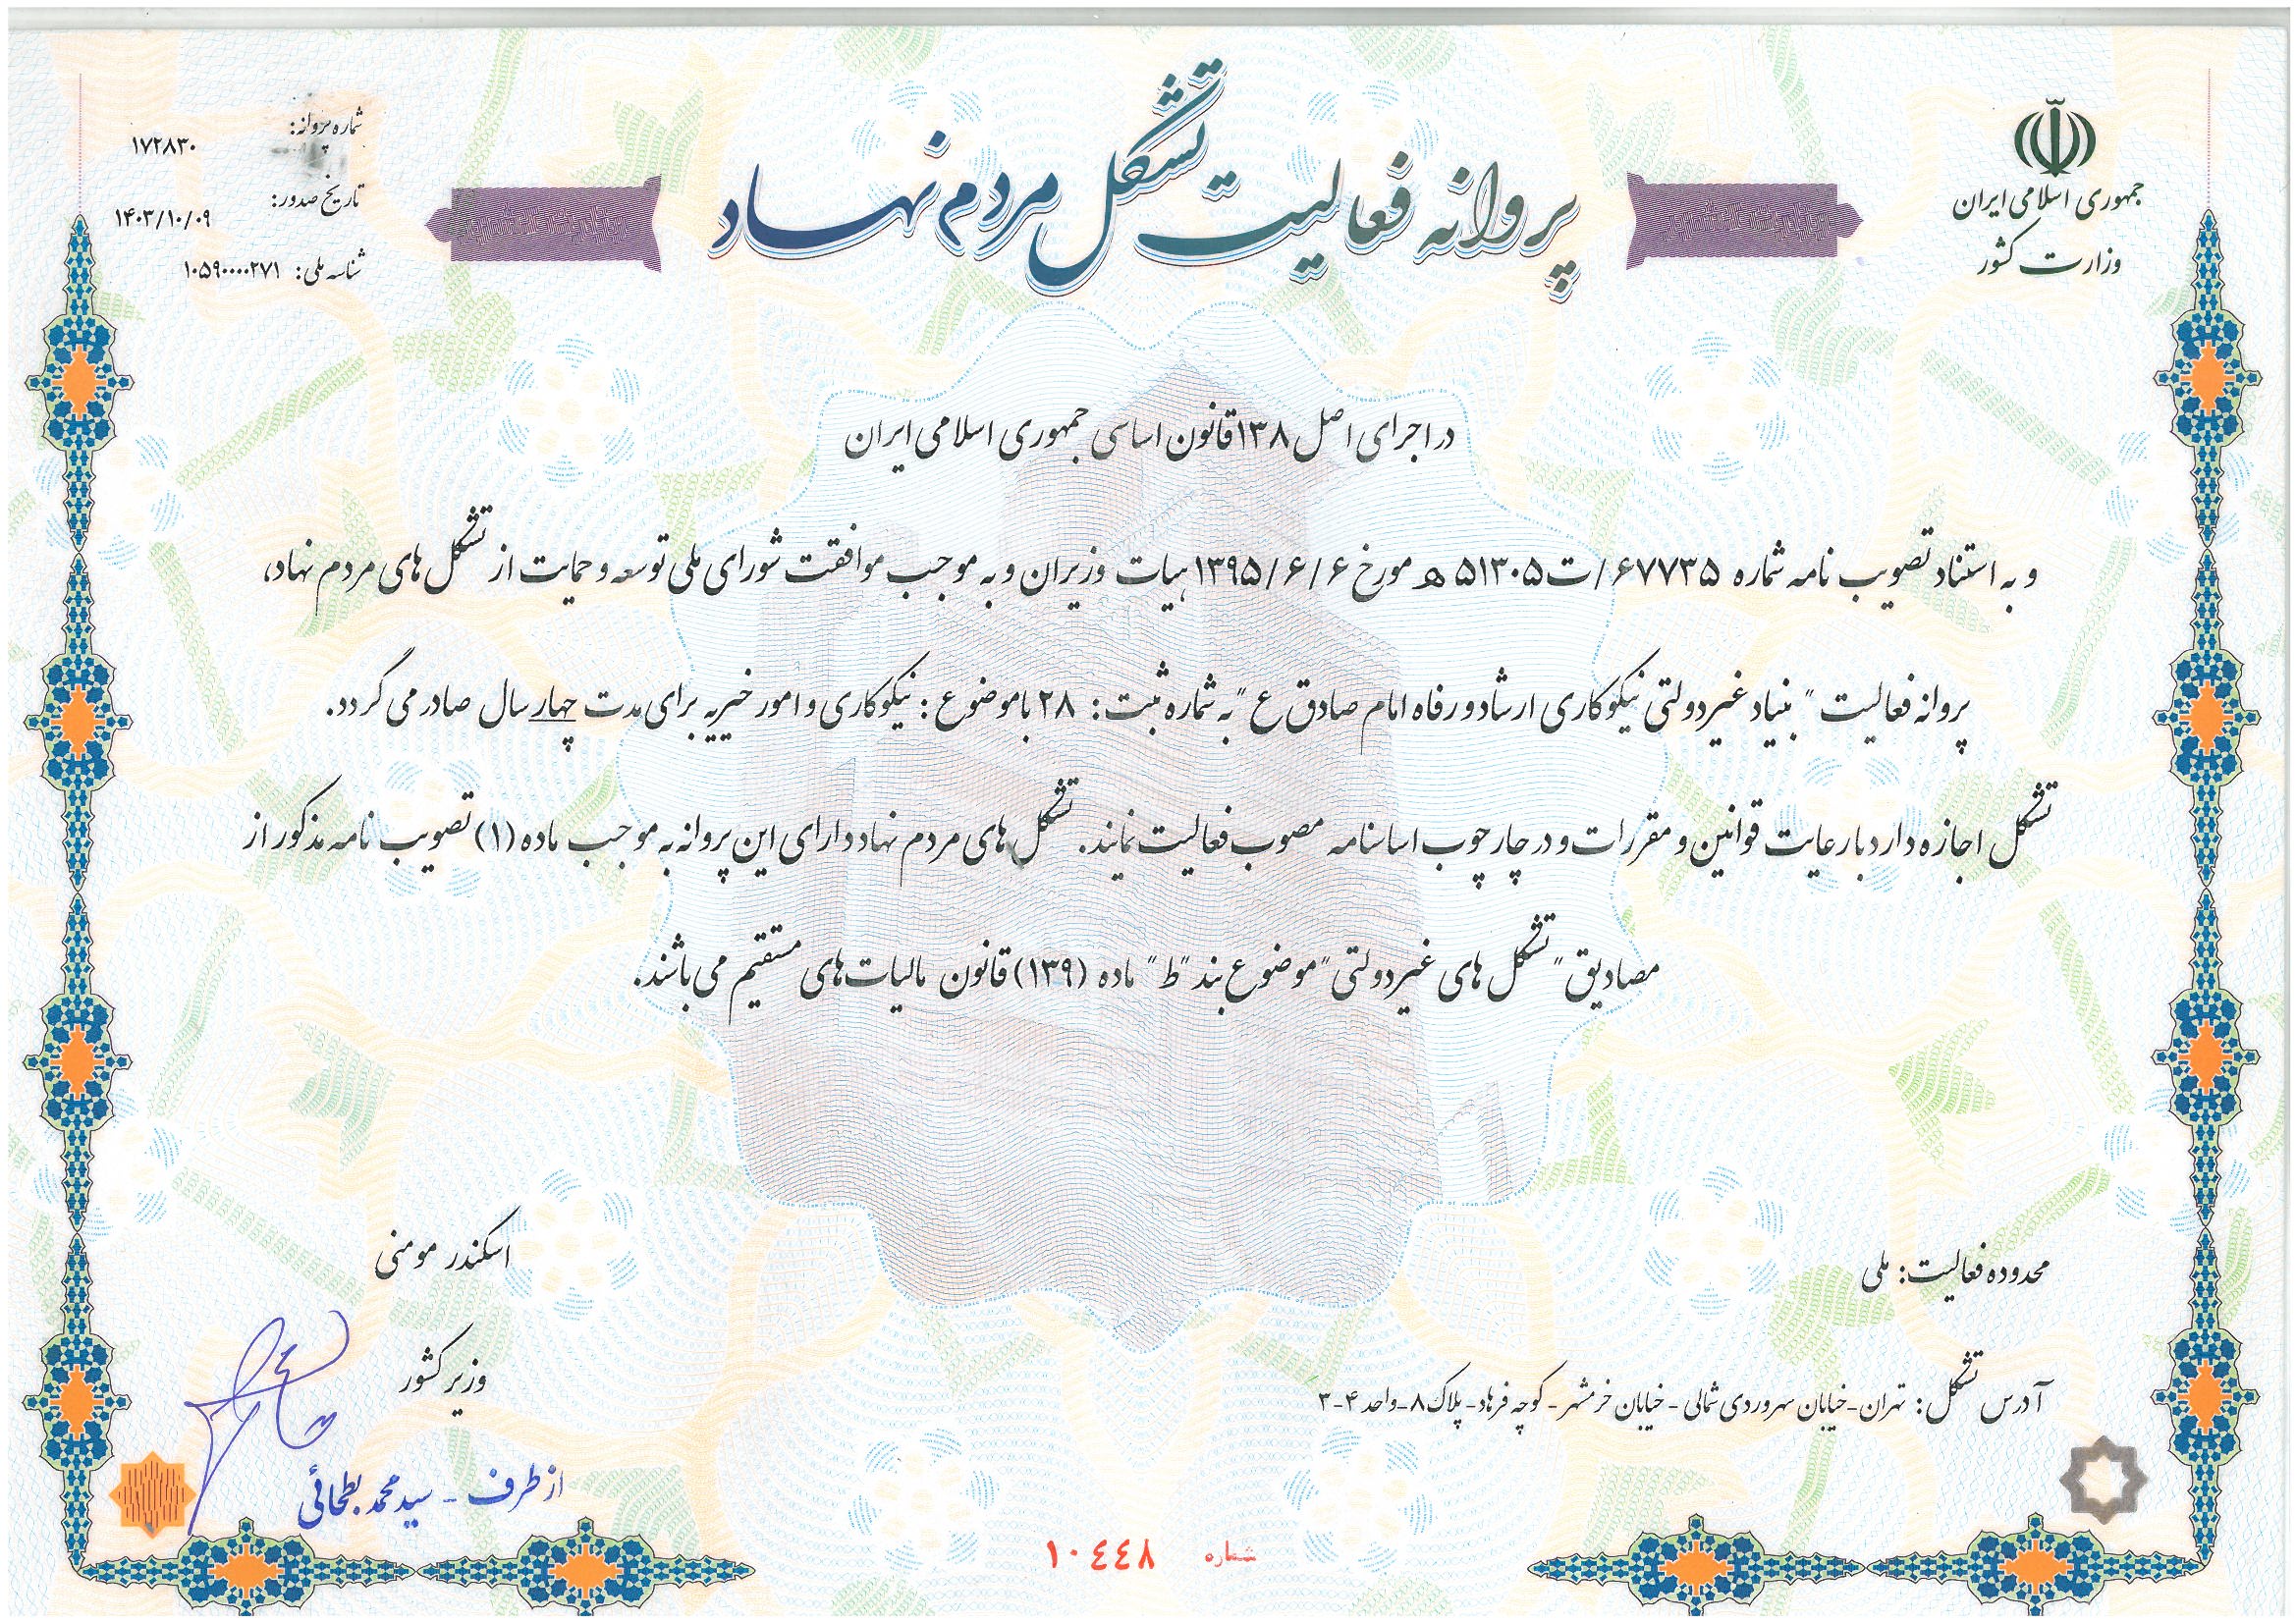 جمهوری اسلامی ایران
وزارت کشور
پروانه فعالیت تشکل مردم نهاد
شماره پروانه:
۱۷۲۸۳۰
تاریخ صدور:
۱۴۰۳/۱۰/۰۹
شناسه ملی: ۱۰۵۹۰۰۰۰۲۷۱
در اجرای اصل ۱۳۸ قانون اساسی جمهوری اسلامی ایران
و به استناد تصویب نامه شماره ۶۷۷۳۵/ت۵۱۳۰۵ ه مورخ ۱۳۹۵/۶/۶ هیات وزیران و به موجب موافقت شورای ملی توسعه و حمایت از تشکل های مردم نهاد،
پروانه فعالیت " بنیاد غیردولتی نیکوکاری ارشاد و رفاه امام صادق ع " به شماره ثبت: ۲۸ با موضوع : نیکوکاری و امور خیریه برای مدت چهار سال صادر می گردد.
تشکل اجازه دارد با رعایت قوانین و مقررات و در چارچوب اساسنامه مصوب فعالیت نماید. تشکل های مردم نهاد دارای این پروانه به موجب ماده (۱) تصویب نامه مذکور از
مصادیق " تشکل های غیردولتی " موضوع بند "ط" ماده (۱۳۹) قانون مالیات های مستقیم می باشند.
محدوده فعالیت: ملی
آدرس تشکل: تهران-خیابان سهروردی شمالی - خیابان خرمشهر - کوچه فرهاد- پلاک ۸-واحد ۴-۳
اسکندر مومنی
وزیر کشور
از طرف - سید محمد بطحائی
شماره ۱۰۴۴۸